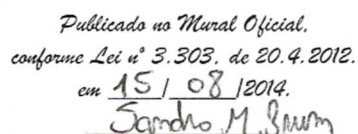 Publicado no Mural Oficial,
conforme Lei nº 3.303, de 20.4.2012.
em 15/08/2014.
Sandro M. Brum